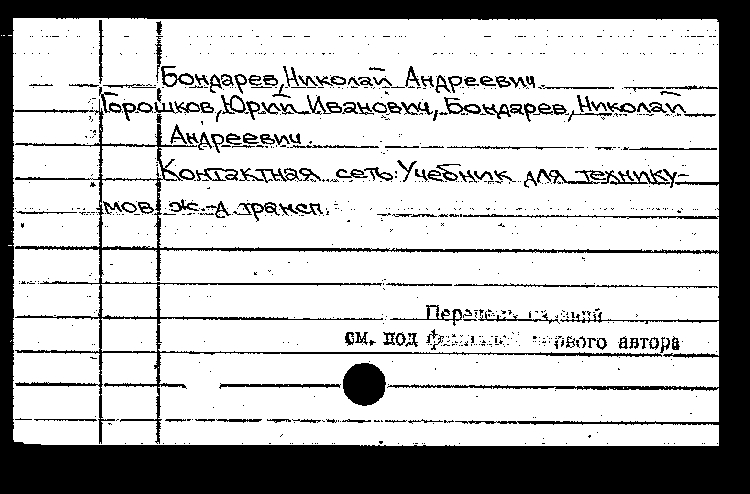 Бондарев, Николай Андреевич
Горошков, Юрий Иванович, Бондарев, Николай
Андреевич.
Контактная сеть: Учебник для технику-
мов ж.-д. трансп.
Перечень изданий
см. под фамилией первого автора